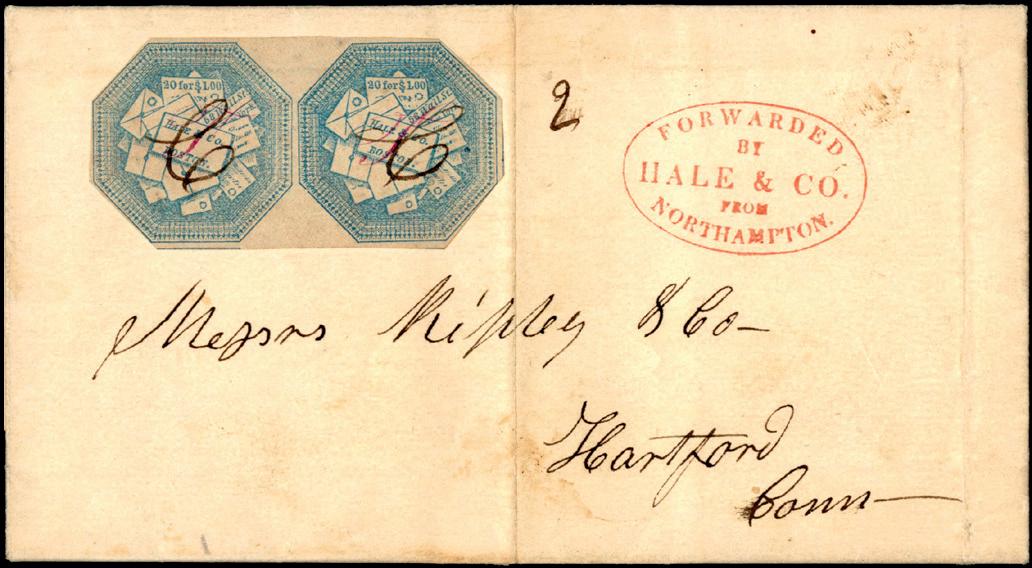 20 for $1.00
HALE & CO.
BOSTON.
20 for $1.00
HALE & CO.
BOSTON.
2
FORWARDED
BY
HALE & CO.
FROM
NORTHAMPTON.
Messrs Ripley & Co-
Hartford
Conn